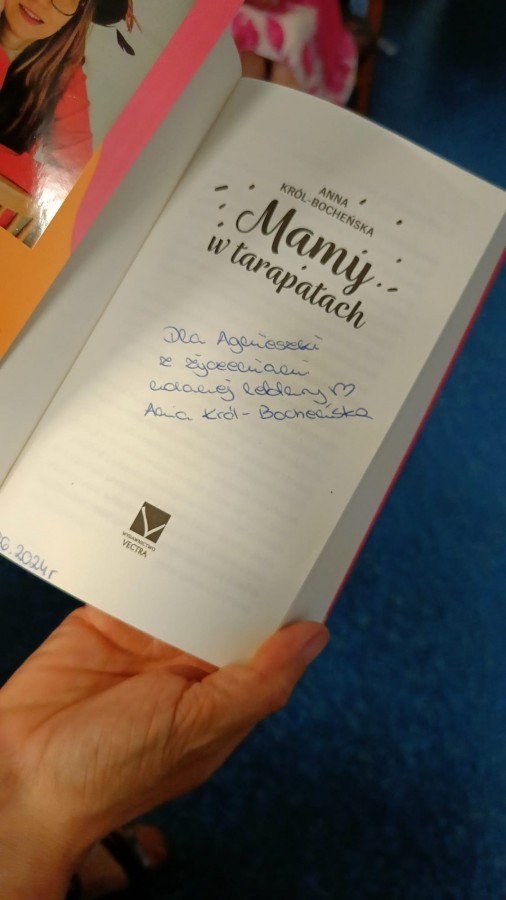 ANNA
KRÓL-BOCHEŃSKA
Mamy
w tarapatach
Dla Agnieszki
z życzeniami
udanej lektury ♡
Ania Król-Bocheńska
WYDAWNICTWO
VECTRA
06.2024r